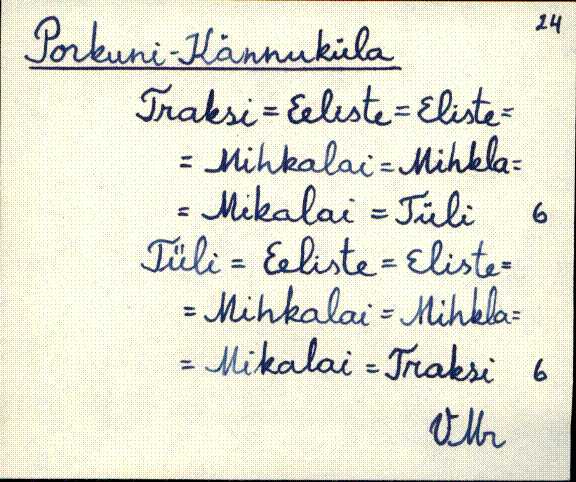 24
Porkuni-Kännuküla
Traksi = Eeliste = Eliste =
= Mihkalai = Mihkla =
= Mikalai = Tüli 6
Tüli = Eeliste = Eliste =
= Mihkalai = Mihkla =
= Mikalai = Traksi 6
VMr